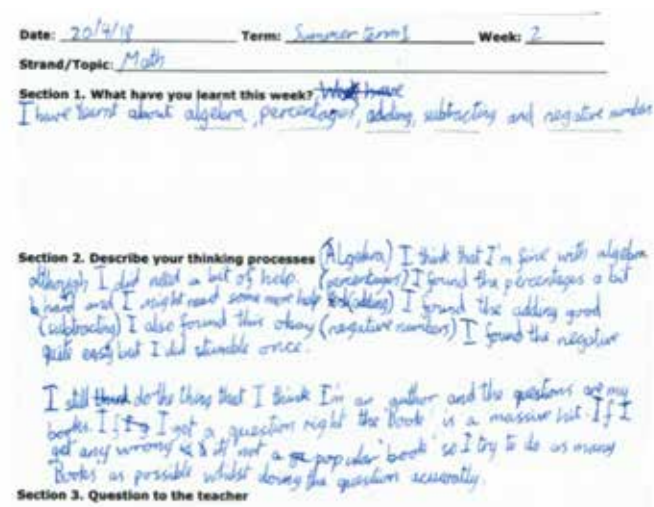 Date: 20/4/18 Term: Summer term 1 Week: 2
Strand/Topic: Math
Section 1. What have you learnt this week? What have
I have learnt about algebra, percentages, adding, subtracting and negative numbers
Section 2. Describe your thinking processes (Algebra) I think that I'm fine with algebra
although I did need a bit of help. (percentages) I found the percentages a bit
hard and I might need some more help (adding) I found the adding good
(subtracting) I also found this okay (negative numbers) I found the negative
quite easy but I did stumble once.
I still do the thing that I think I'm an author and the questions are my
books. If I got a question right the 'Book' is a massive hit. If I
get any wrong it's not a popular 'book' so I try to do as many
Books as possible whilst doing the question accuratly.
Section 3. Question to the teacher